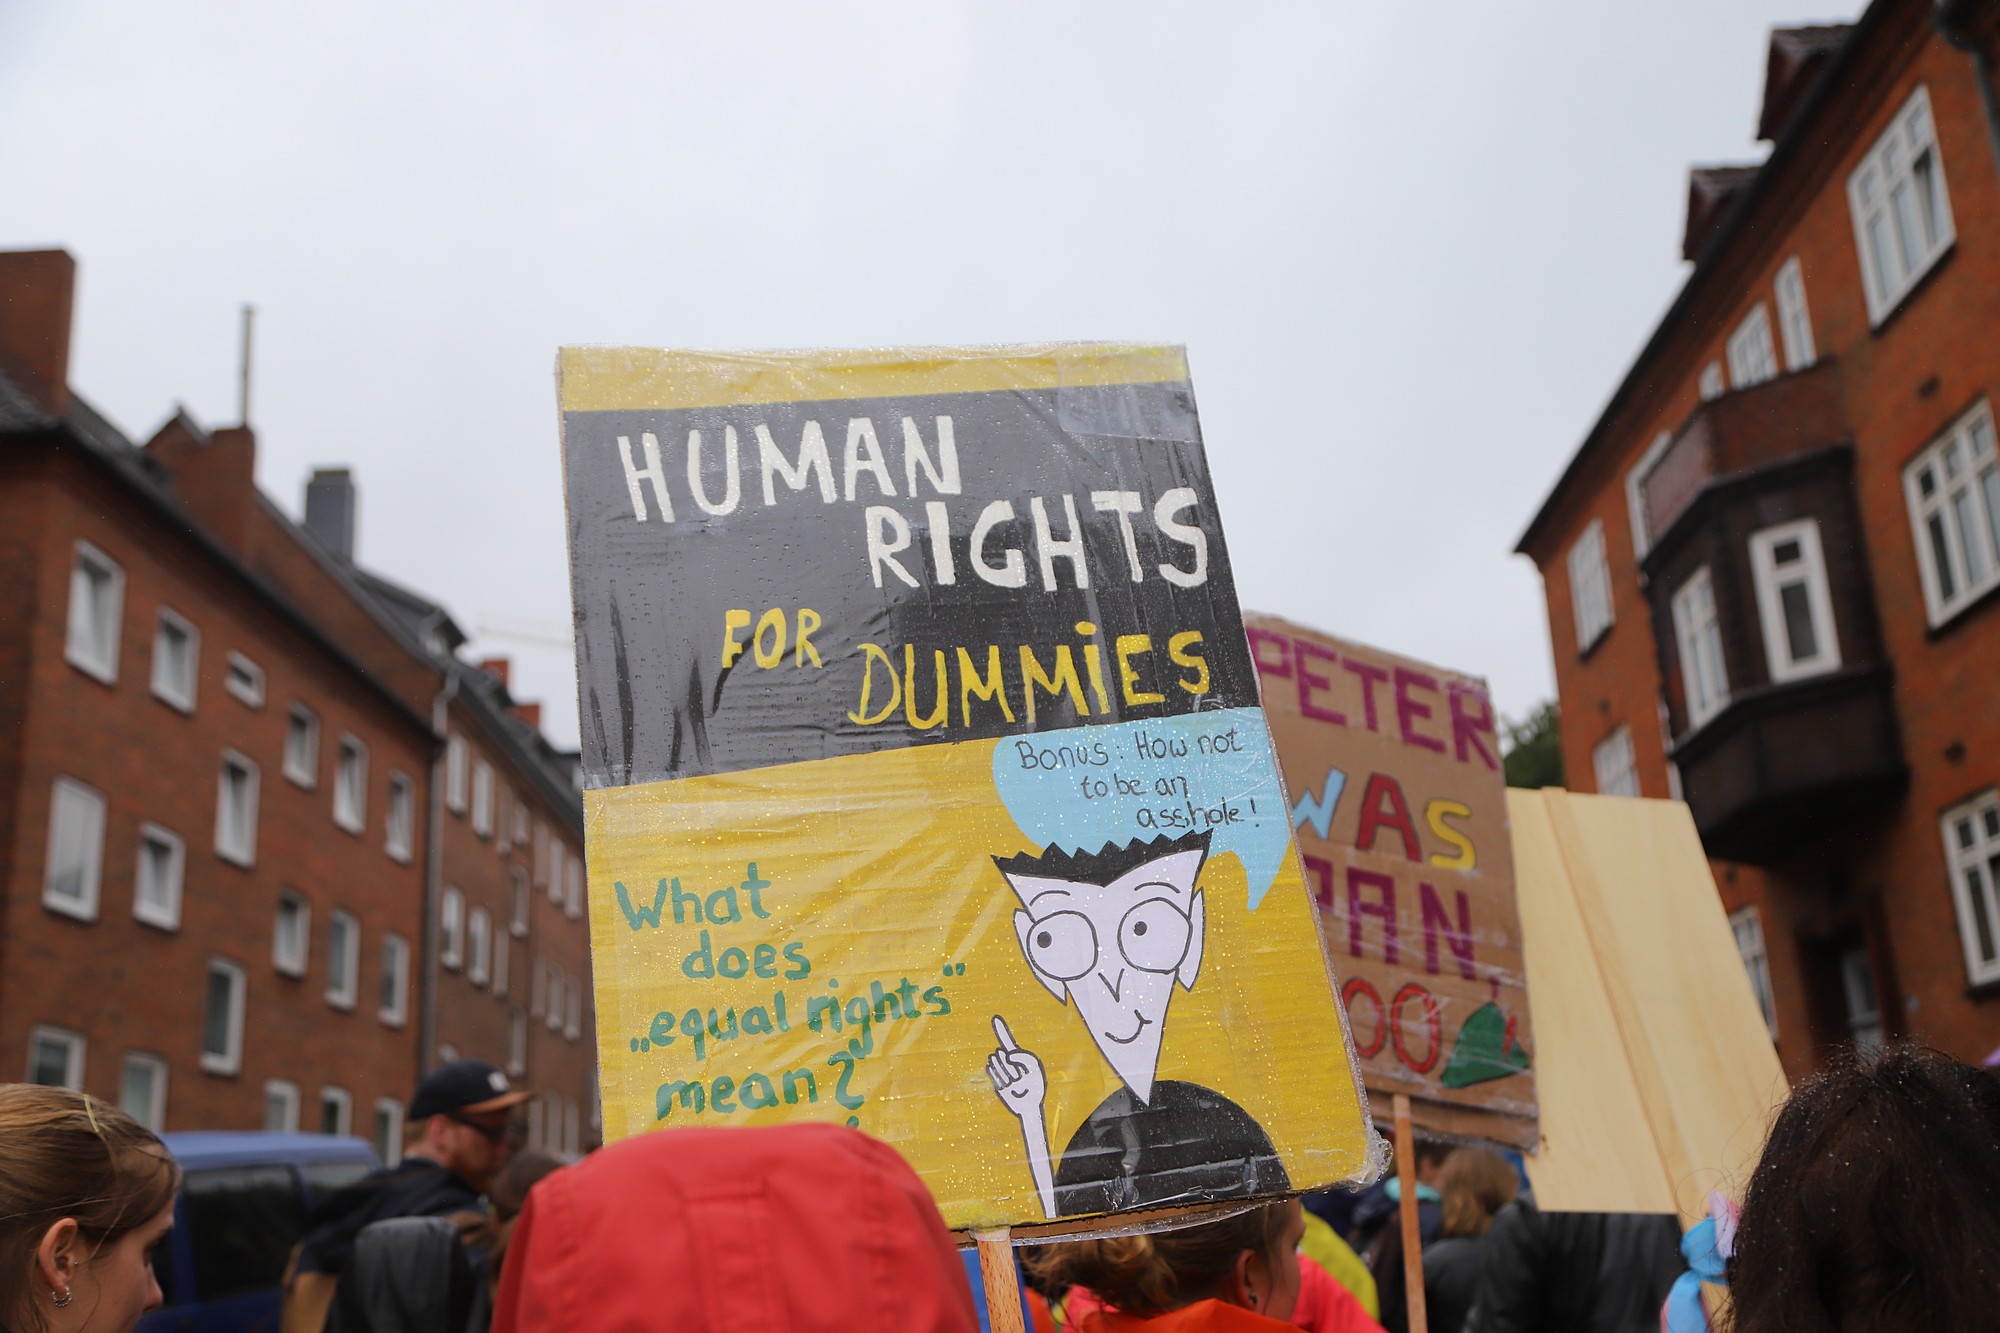 HUMAN
RIGHTS
FOR DUMMiES
Bonus: How not
to be an
asshole!
What
does
„equal rights"
mean?
PETER
WAS
PAN,
TOO